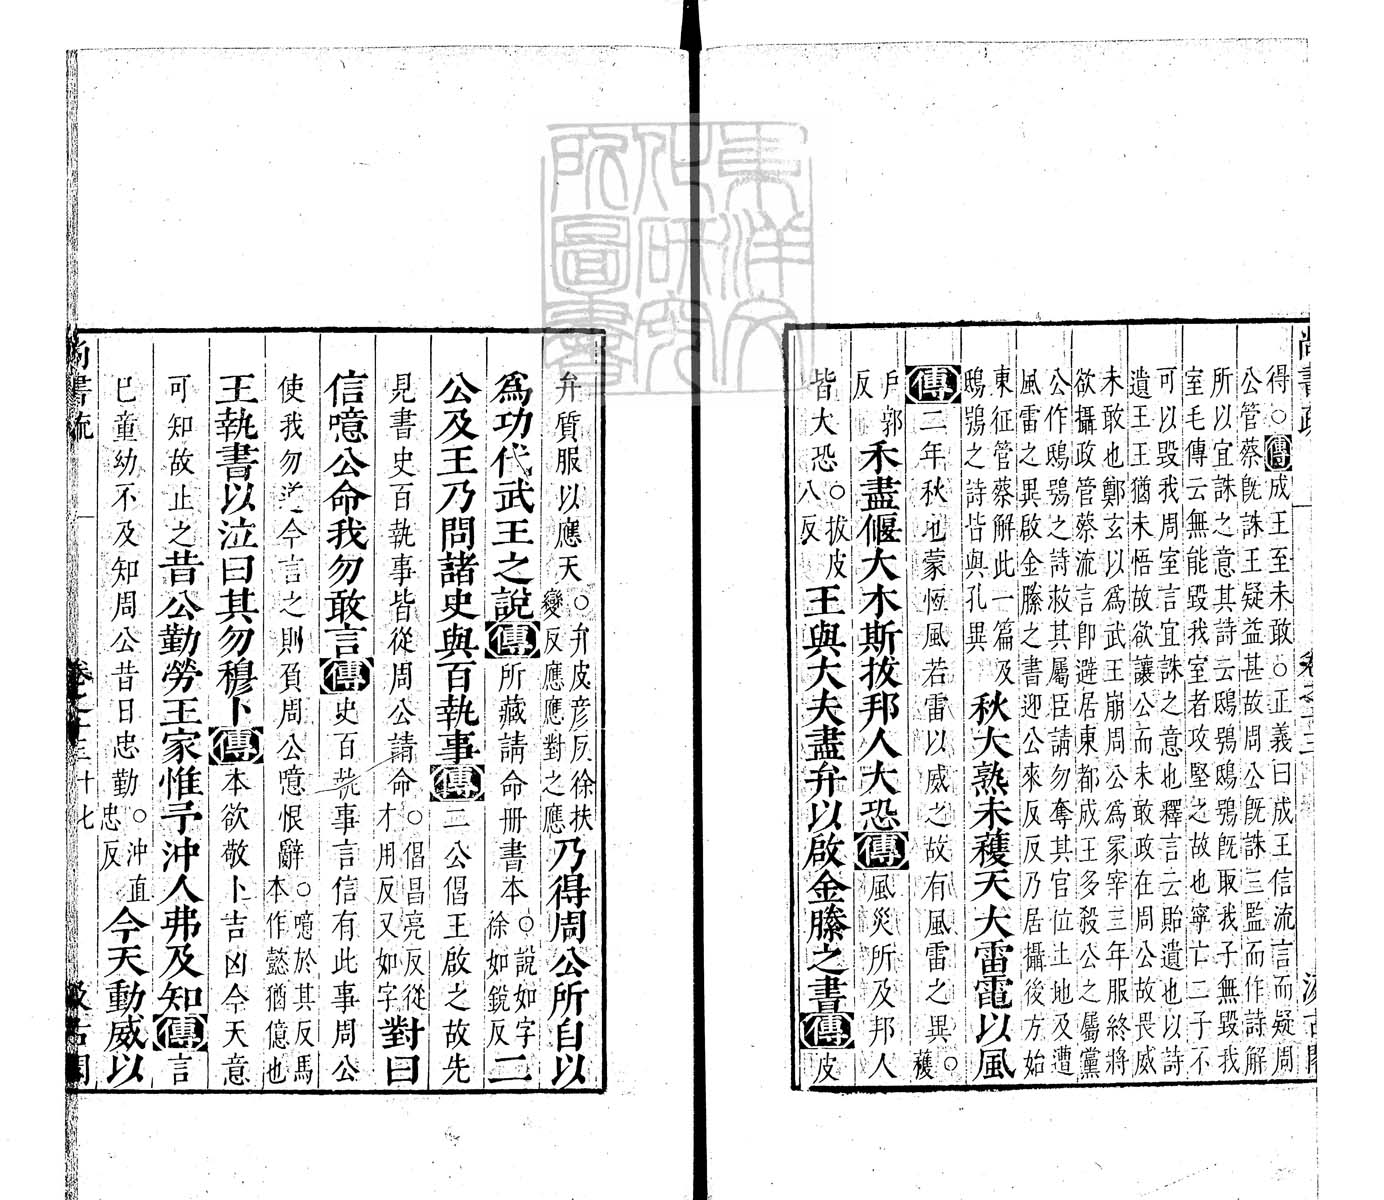 尚書疏 卷之十三 汲古閣
得○傳成王至未敢○正義曰成王信流言而疑周
公管蔡既誅王疑益甚故周公既誅三監而作詩解
所以宜誅之意其詩云鴟鴞鴟鴞既取我子無毀我
室毛傳云無能毀我室者攻堅之故也寧亡二子不
可以毀我周室言宜誅之意也釋言云貽遺也以詩
遺王王猶未悟故欲讓公而未敢政在周公故畏威
未敢也鄭玄以爲武王崩周公爲冢宰三年服終將
欲攝政管蔡流言即避居東都成王多殺公之屬黨
公作鴟鴞之詩救其屬臣請勿奪其官位土地及遭
風雷之異啟金縢之書迎公來反反乃居攝後方始
東征管蔡解此一篇及
鴟鴞之詩皆與孔異 秋大熟未穫天大雷電以風
傳二年秋也蒙恆風若雷以威之故有風雷之異○穫
戶郭反禾盡偃大木斯拔邦人大恐傳風災所及邦人
皆大恐○拔皮八反王與大夫盡弁以啟金縢之書傳皮
弁質服以應天○弁皮彥反徐扶變反應應對之應乃得周公所自以
爲功代武王之說傳所藏請命冊書本○說如字徐如銳反二
公及王乃問諸史與百執事傳二公倡王啟之故先
見書史百執事皆從周公請命○倡昌亮反從才用反又如字對曰
信噫公命我勿敢言傳史百執事言信有此事周公
使我勿道今言之則負周公噫恨辭○噫於其反馬本作懿猶億也
王執書以泣曰其勿穆卜傳本欲敬卜吉凶今天意
可知故止之昔公勤勞王家惟予沖人弗及知傳言
已童幼不及知周公昔日忠勤○沖直忠反今天動威以
尚書疏 卷之十三 十七 汲古閣
東洋文化研究所圖書